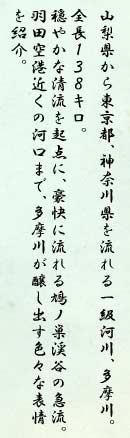 山梨県から東京都、神奈川県を流れる一級河川、多摩川。
全長138キロ。
穏やかな清流を起点に、豪快に流れる鳩ノ巣渓谷の急流。
羽田空港近くの河口まで、多摩川が醸し出す色々な表情
を紹介。